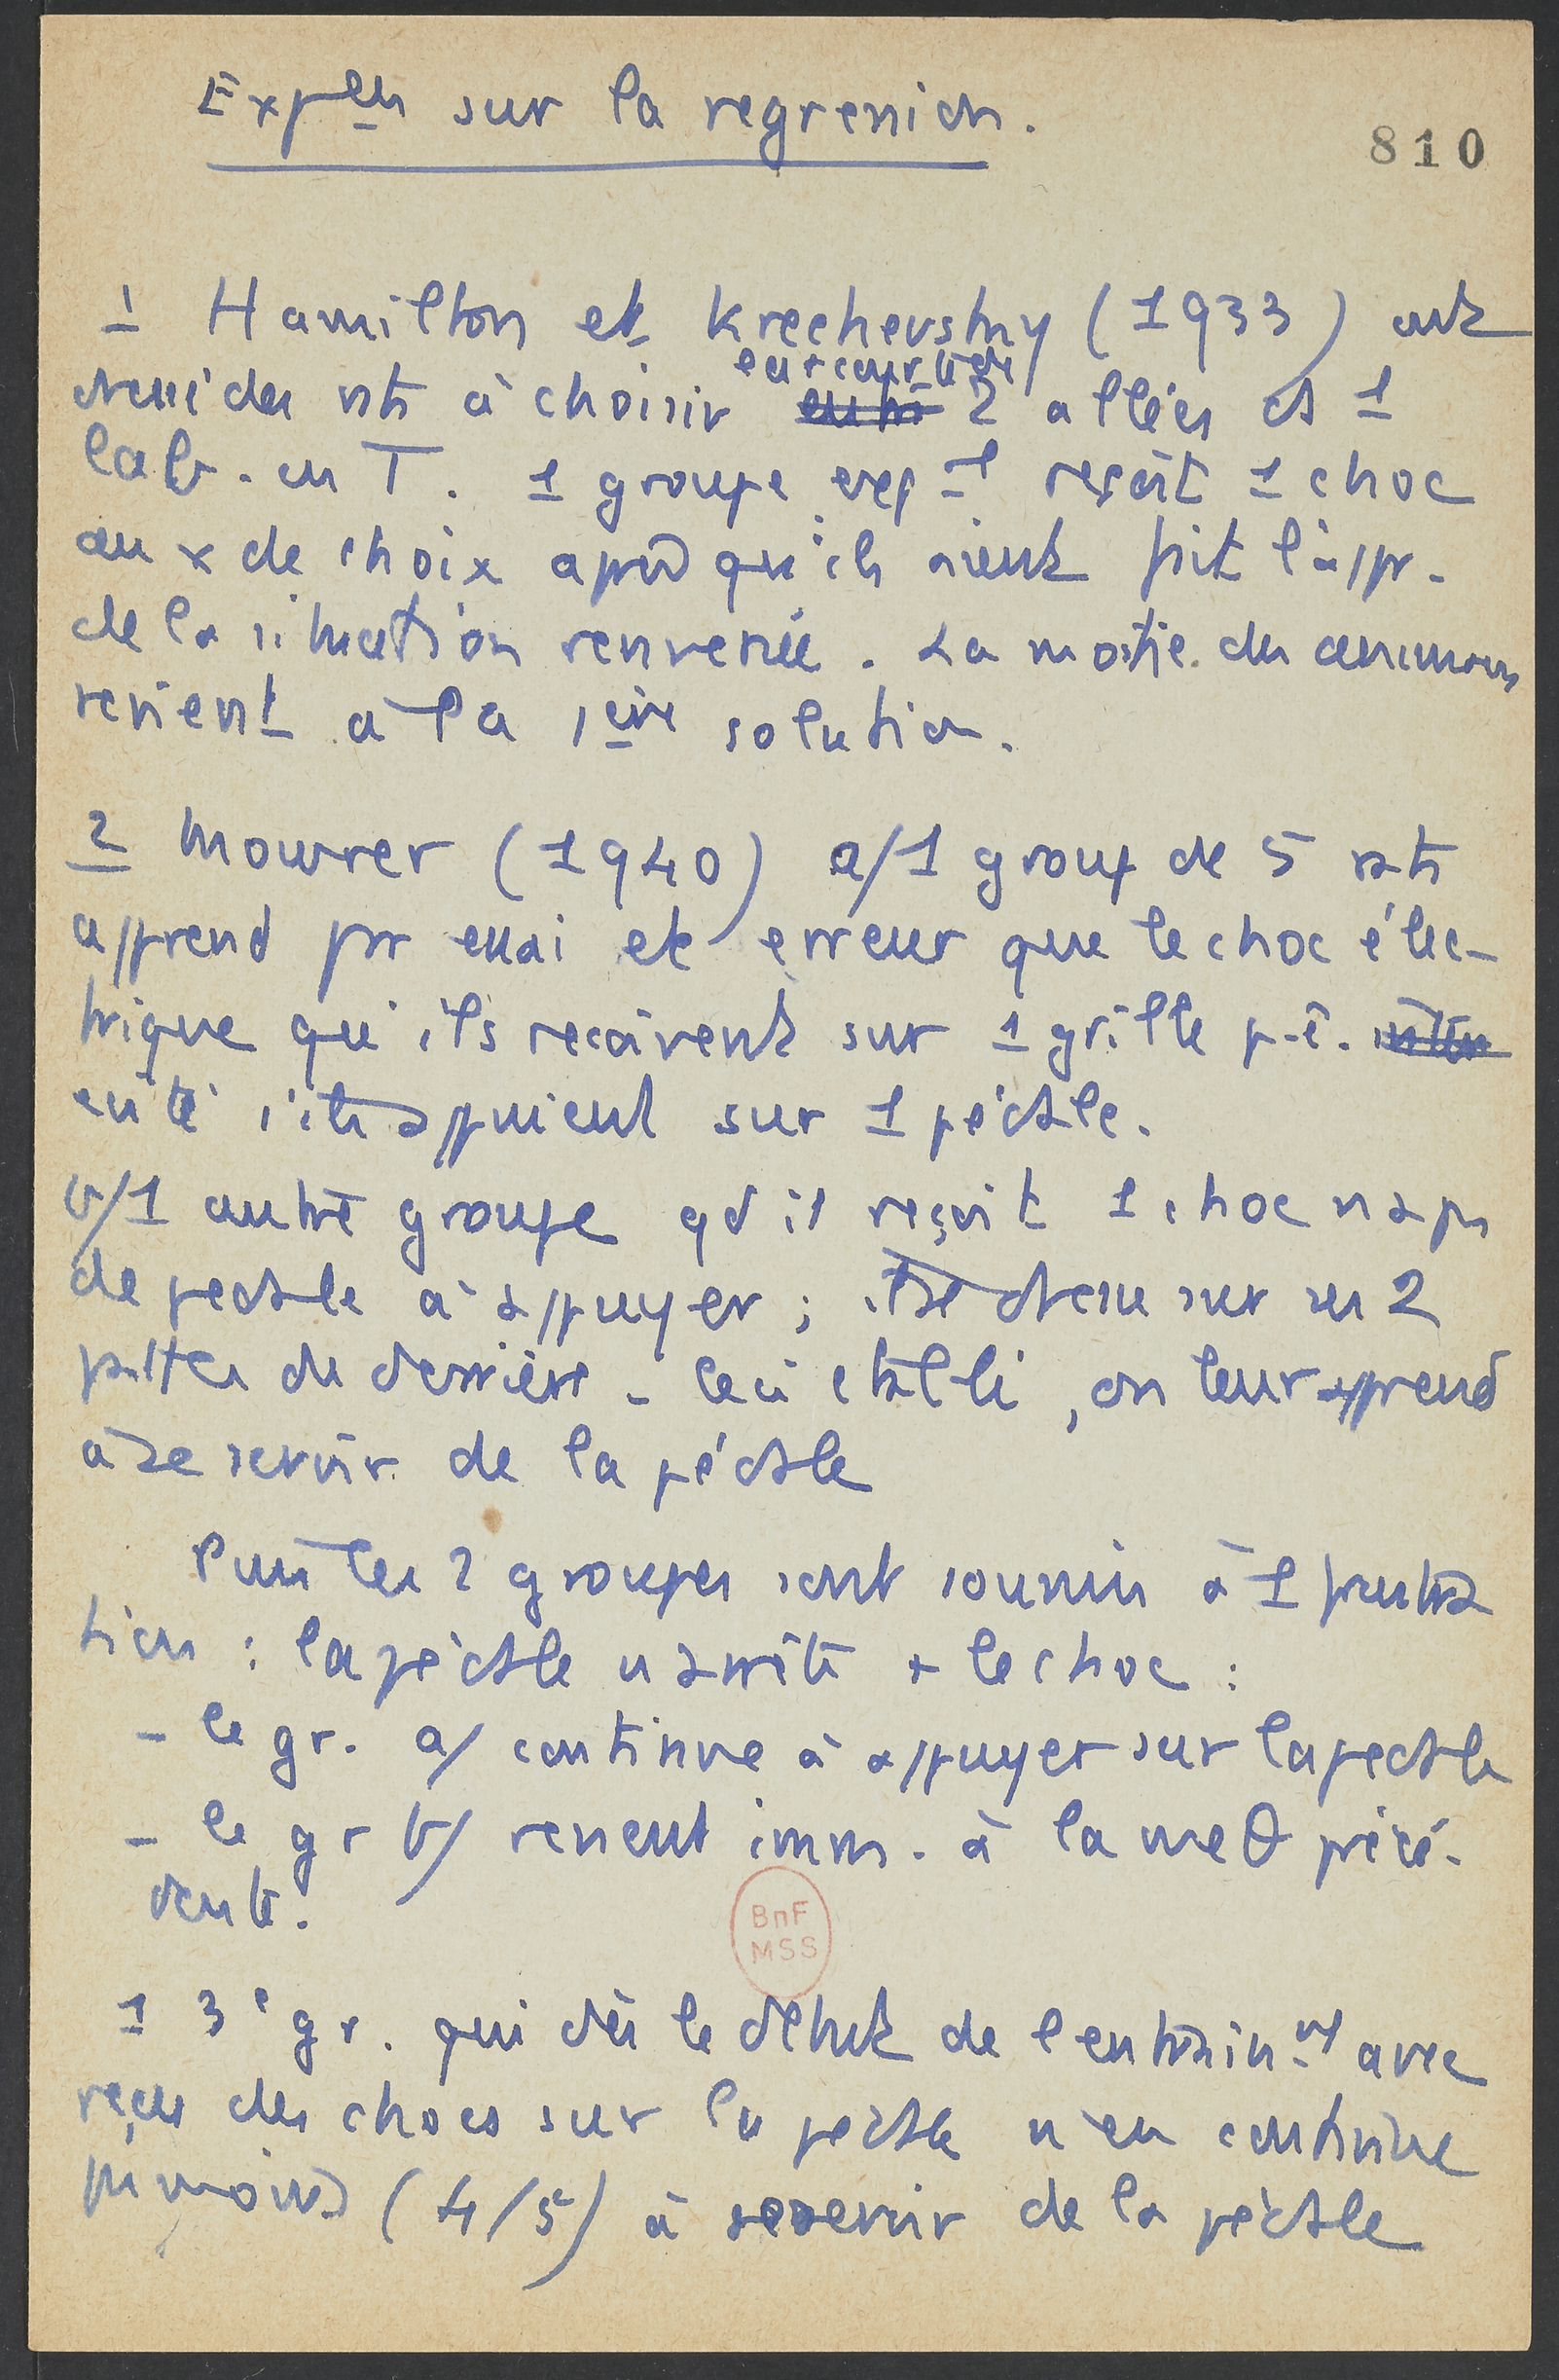 Exp^ces sur la regression.
810
1 Hamilton et Krechevsky (1933) ont
dressé des rats à choisir 2 allées ds 1
lab. en T. 1 groupe exp^l reçoit 1 choc
au x de choix après qu'ils aient fait l'appr.
de la situation renversée. La moitié des animaux
revient à la 1ère solution.
2 Mowrer (1940) a/ 1 groupe de 5 rats
apprend par essai et erreur que le choc élec-
trique qu'ils reçoivent sur 1 grille p.ê.
évité s'ils appuient sur 1 pédale.
b/ 1 autre groupe qd il reçoit 1 choc n'a pas
de pedale à appuyer ; il se dresse sur ses 2
pattes de derrière - Ceci établi, on leur apprend
à se servir de la pédale
Puis les 2 groupes sont soumis à 1 frustra
tion : la pédale n'arrête + le choc :
- le gr. a/ continue à appuyer sur la pedale
- le gr b/ revient imm. à la méθ précé-
dente.
1 3e gr. qui dès le début de l'entrain^mt avec
reçu des chocs sur la pédale n'en continue
pas moins (4/5) à se servir de la pédale
BnF
MSS